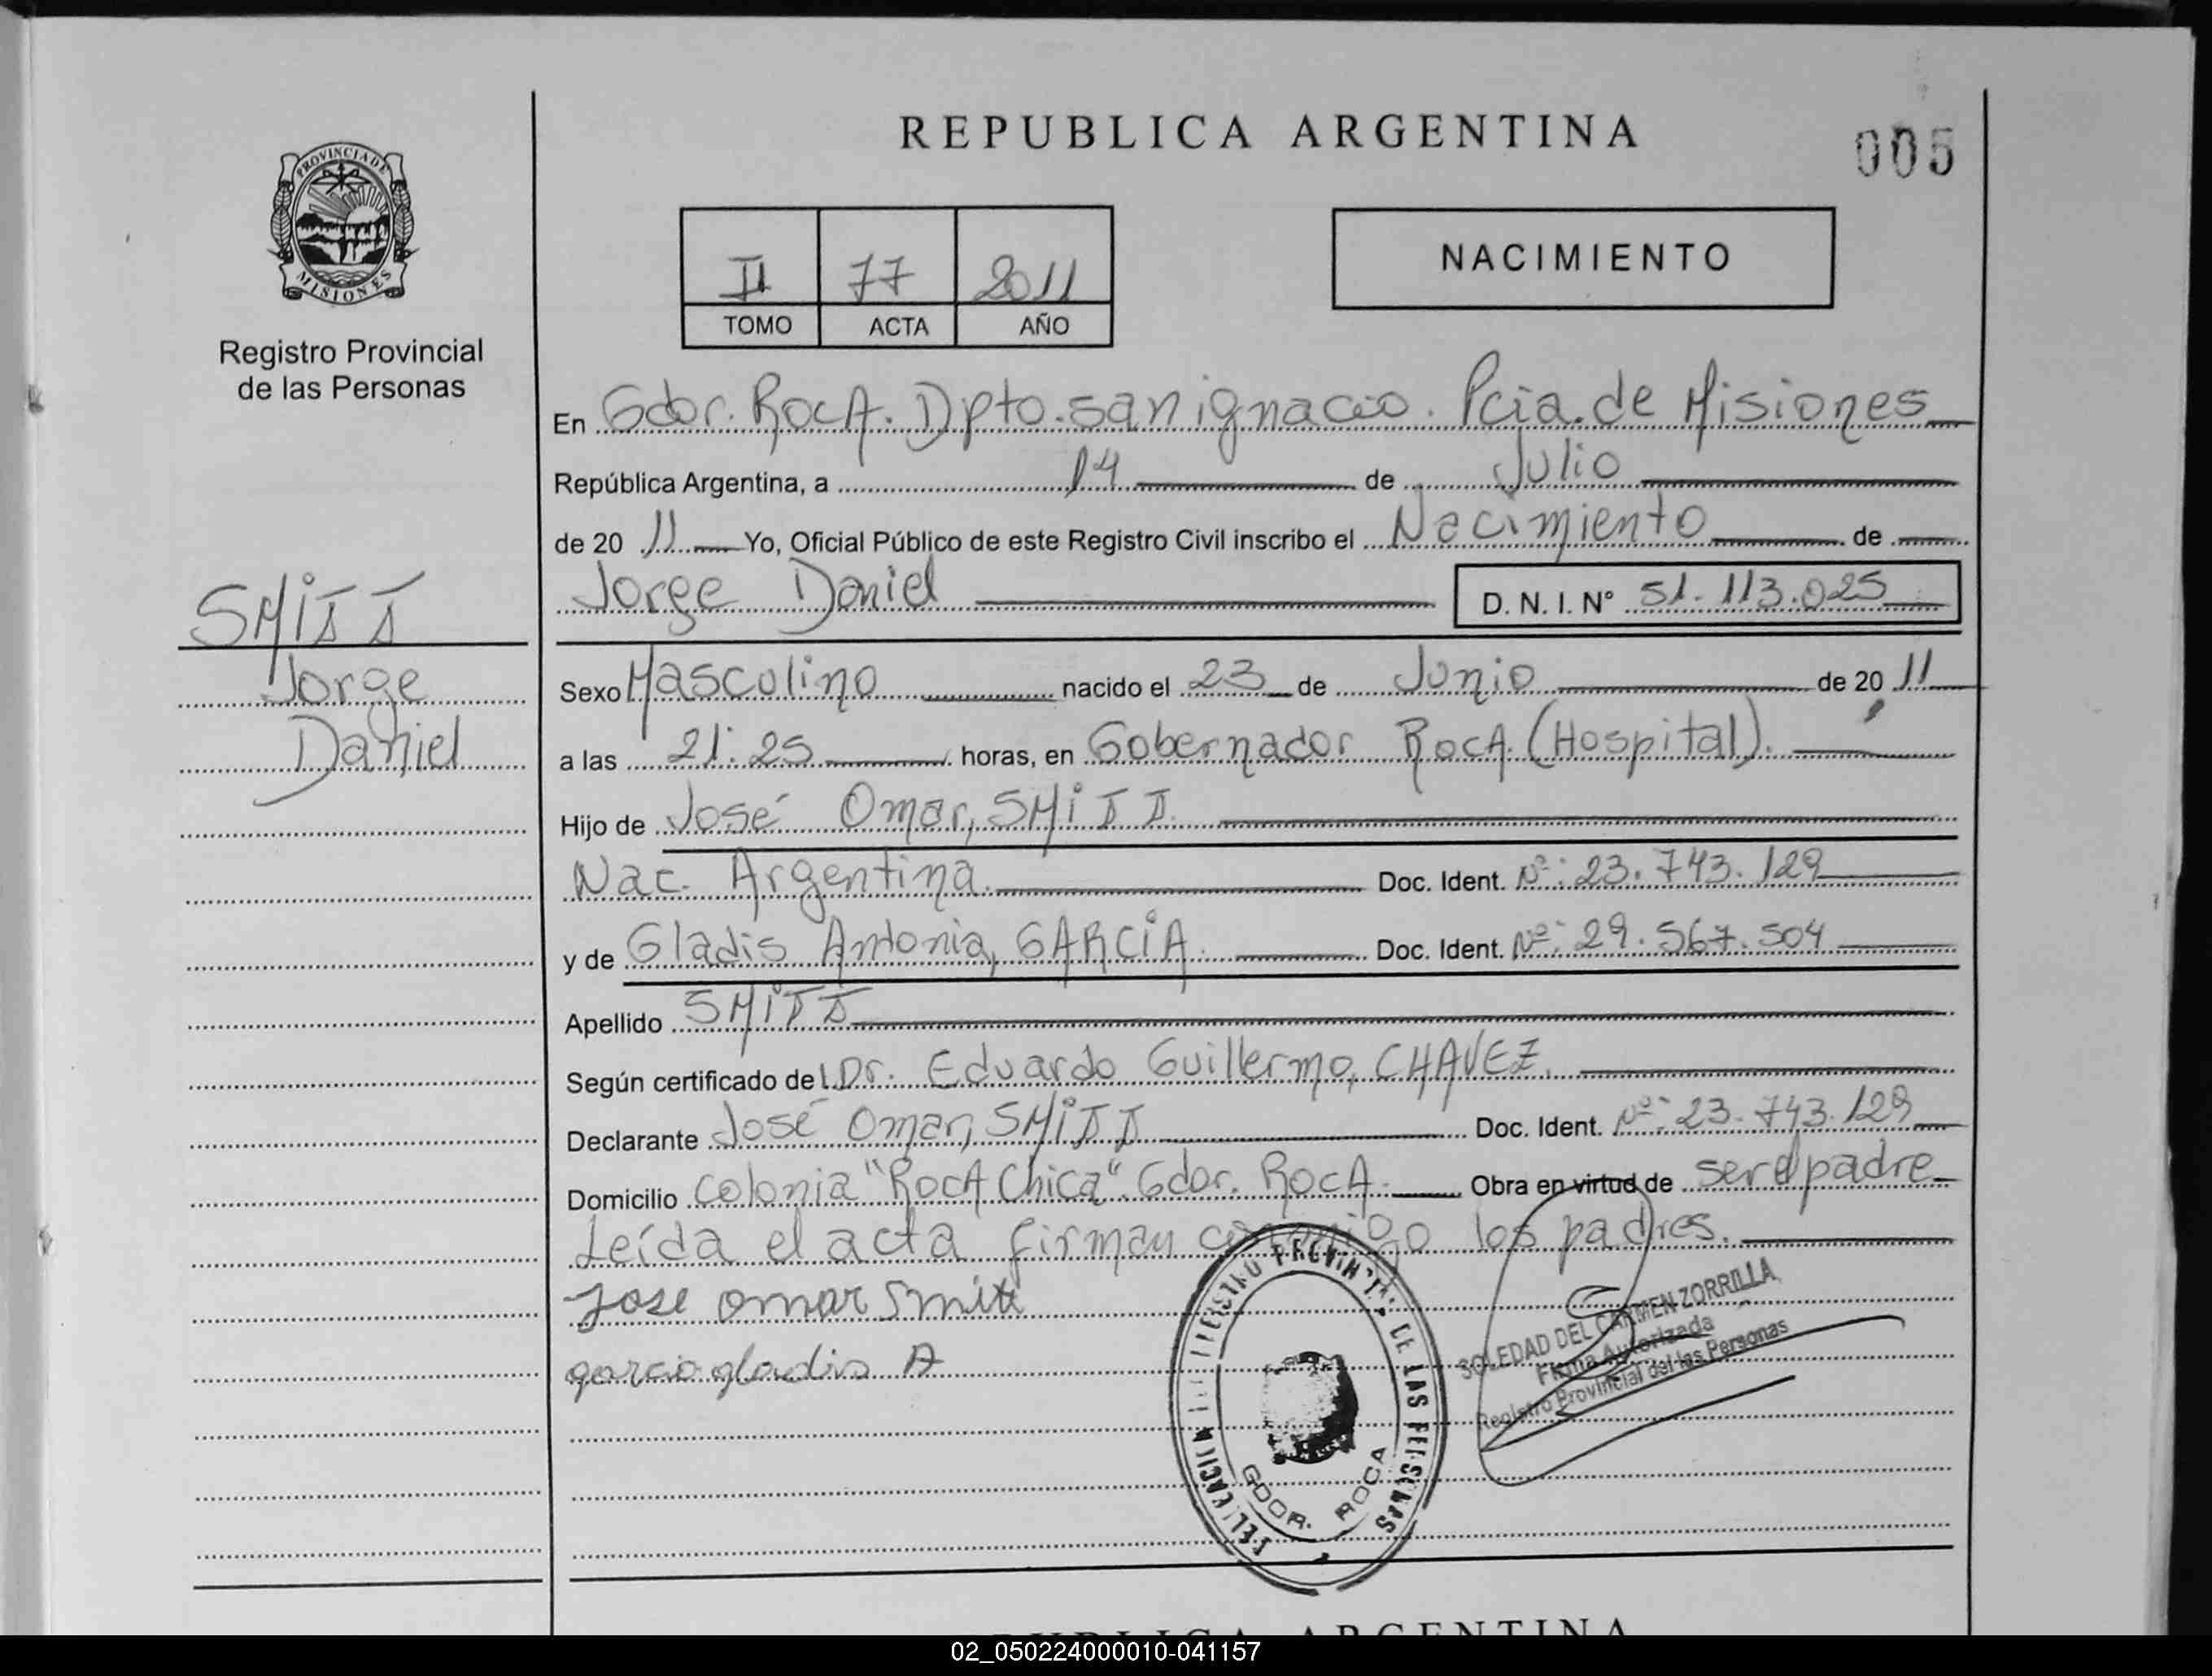 REPUBLICA ARGENTINA
005
PROVINCIA DE
MISIONES
Registro Provincial
de las Personas
II 77 2011
TOMO ACTA AÑO
NACIMIENTO
En Gdor. RocA. Dpto. san ignacio. Pcia. de Misiones
República Argentina, a 14 de Julio
de 20 11 Yo, Oficial Público de este Registro Civil inscribo el Nacimiento de
Jorge Daniel D. N. I. N° 51.113.025
SMiTT
Jorge
Daniel
Sexo Masculino nacido el 23 de Junio de 20 11
a las 21:25 horas, en Gobernador RocA. (Hospital).
Hijo de José Omar, SMiTT.
Nac. Argentina. Doc. Ident. Nº: 23.743.129
y de Gladis Antonia, GARCiA. Doc. Ident. Nº: 29.567.504
Apellido SMiTT
Según certificado del Dr. Eduardo Guillermo, CHAVEZ.
Declarante José Omar, SMiTT Doc. Ident. Nº: 23.743.129
Domicilio Colonia "RocA Chica". Gdor. RocA. Obra en virtud de ser el padre
Leída el acta firman conmigo los padres.
Jose omar Smitt
garcia gladis A
REGISTRO PROVINCIAL DE LAS PERSONAS
GDOR. ROCA
SOLEDAD DEL CARMEN ZORRILLA
Firma Autorizada
Registro Provincial del las Personas
REPUBLICA ARGENTINA
02_050224000010-041157